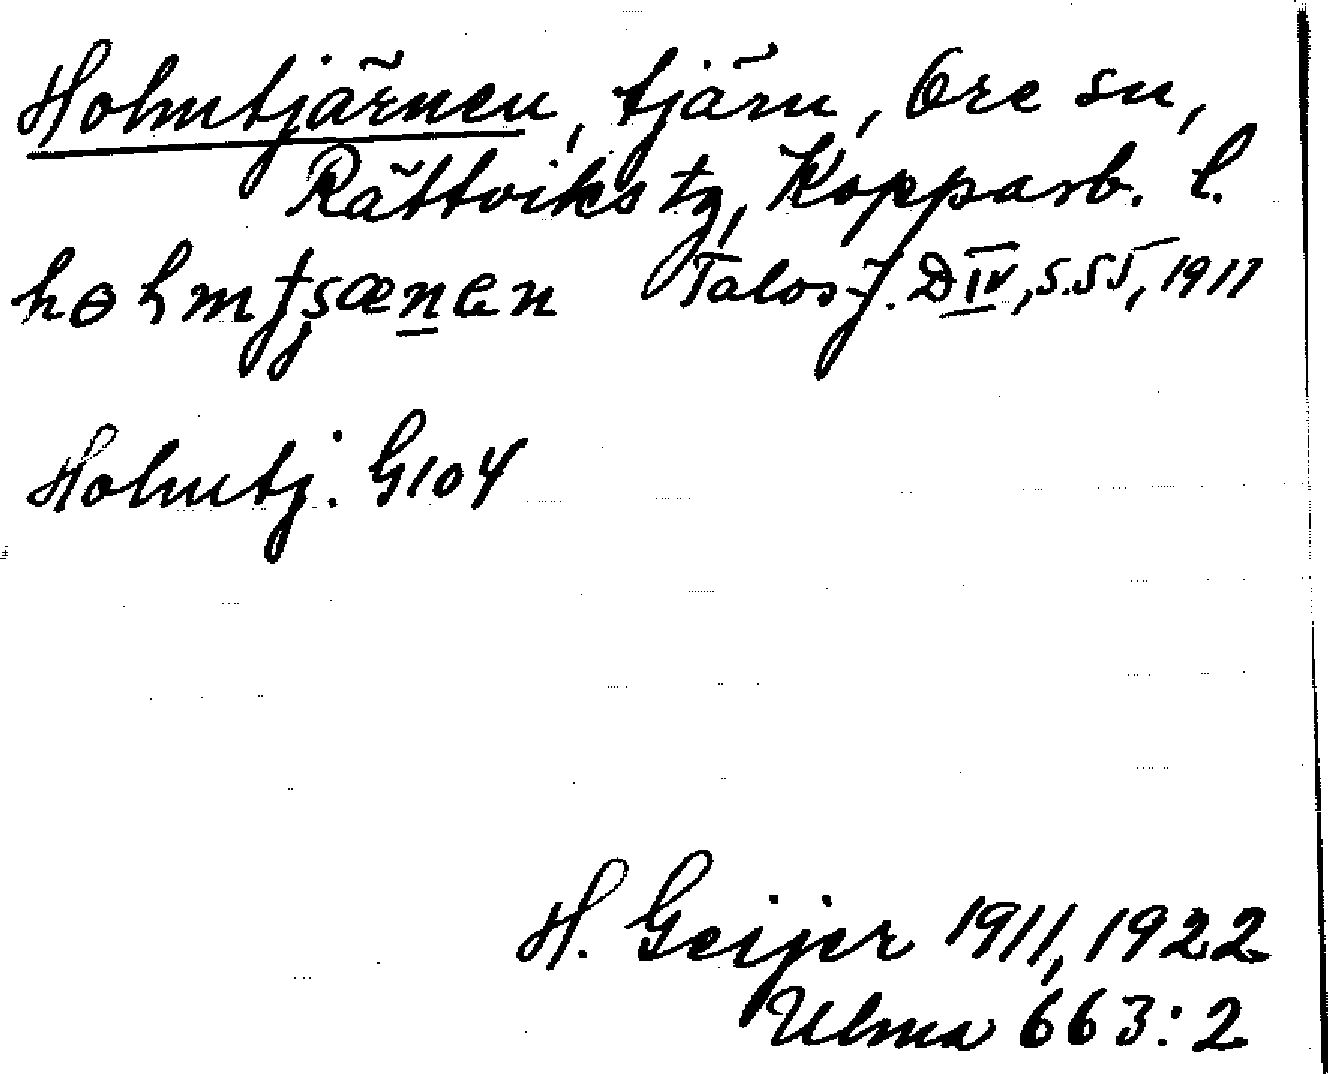 Holmtjärnen, tjärn, Ore sn,
Rättviks tg, Kopparb. l.
Talos J. D IV, S.55, 1917
Holmtj. G104
H. Geijer 1911, 1922
Ulma 663:2